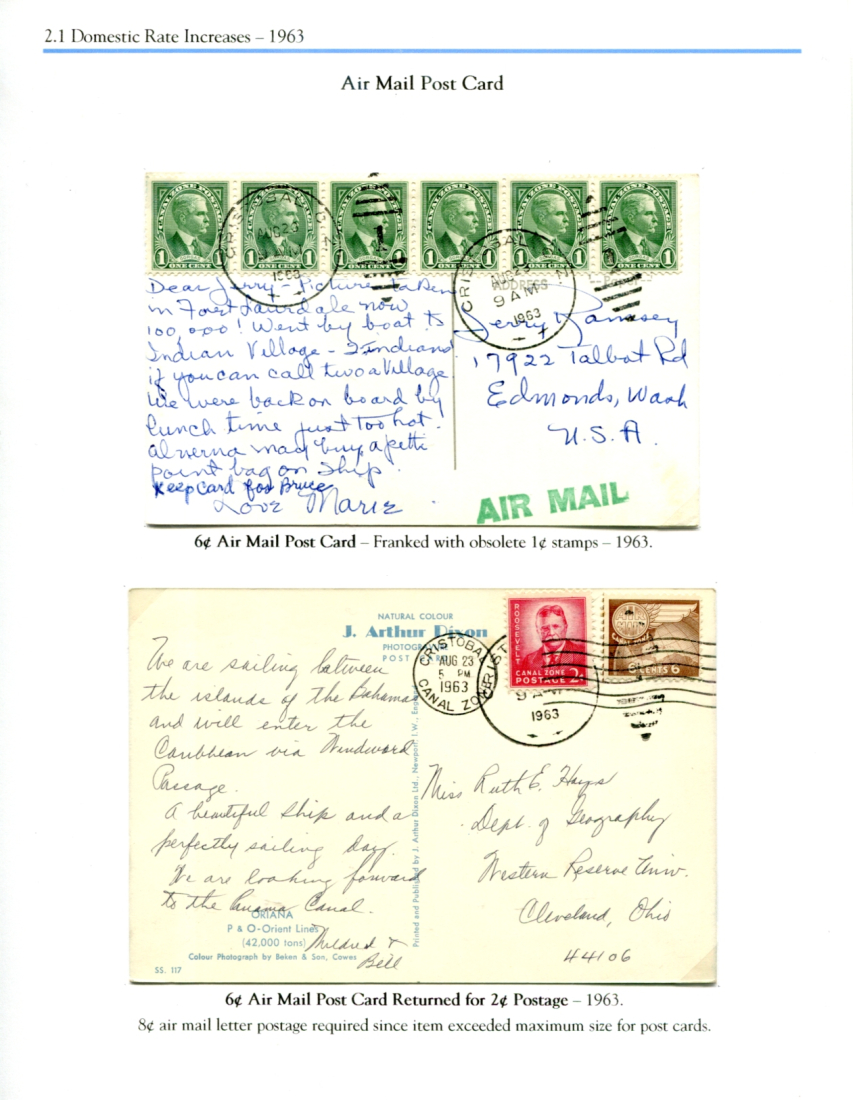 2.1 Domestic Rate Increases – 1963
Air Mail Post Card
CANAL ZONE POSTAGE CANAL ZONE POSTAGE CANAL ZONE POSTAGE CANAL ZONE POSTAGE CANAL ZONE POSTAGE CANAL ZONE POSTAGE
1 ONE CENT 1 1 ONE CENT 1 1 ONE CENT 1 1 ONE CENT 1 1 ONE CENT 1 1 ONE CENT 1
CRISTOBAL C.Z.
AUG 23
1963
CRISTOBAL
AUG 23
9 AM
1963
ADDRESS
Dear Jerry – Picture taken
in Fort Laurdale now
100,000! Went by boat to
Indian Village – 2 indians
if you can call two a Village
We were back on board by
lunch time just too hot.
Alverna may buy a petti
point bag on ship.
Keep Card for Bruce
Love Marie
Jerry Ramsey
17922 Talbot Rd
Edmonds, Wash
U.S.A.
AIR MAIL
6¢ Air Mail Post Card – Franked with obsolete 1¢ stamps – 1963.
NATURAL COLOUR
J. Arthur Dixon
PHOTOGRAPHIC
POST CARD
CRISTOBAL
AUG 23
5 PM
1963
CANAL ZONE
ROOSEVELT
CANAL ZONE
POSTAGE 2¢
CENTS 6
9 AM
1963
We are sailing between
the islands of the Bahamas
and will enter the
Caribbean via Windward
Passage.
A beautiful ship and a
perfectly sailing day.
We are looking forward
to the Panama Canal.
Mildred &
Bell
ORIANA
P & O-Orient Lines
(42,000 tons)
Colour Photograph by Beken & Son, Cowes
SS. 117
Printed and Published by J. Arthur Dixon Ltd., Newport, I.W., England
Miss Ruth E. Hays
Dept. of Geography
Western Reserve Univ.
Cleveland, Ohio
44106
6¢ Air Mail Post Card Returned for 2¢ Postage – 1963.
8¢ air mail letter postage required since item exceeded maximum size for post cards.